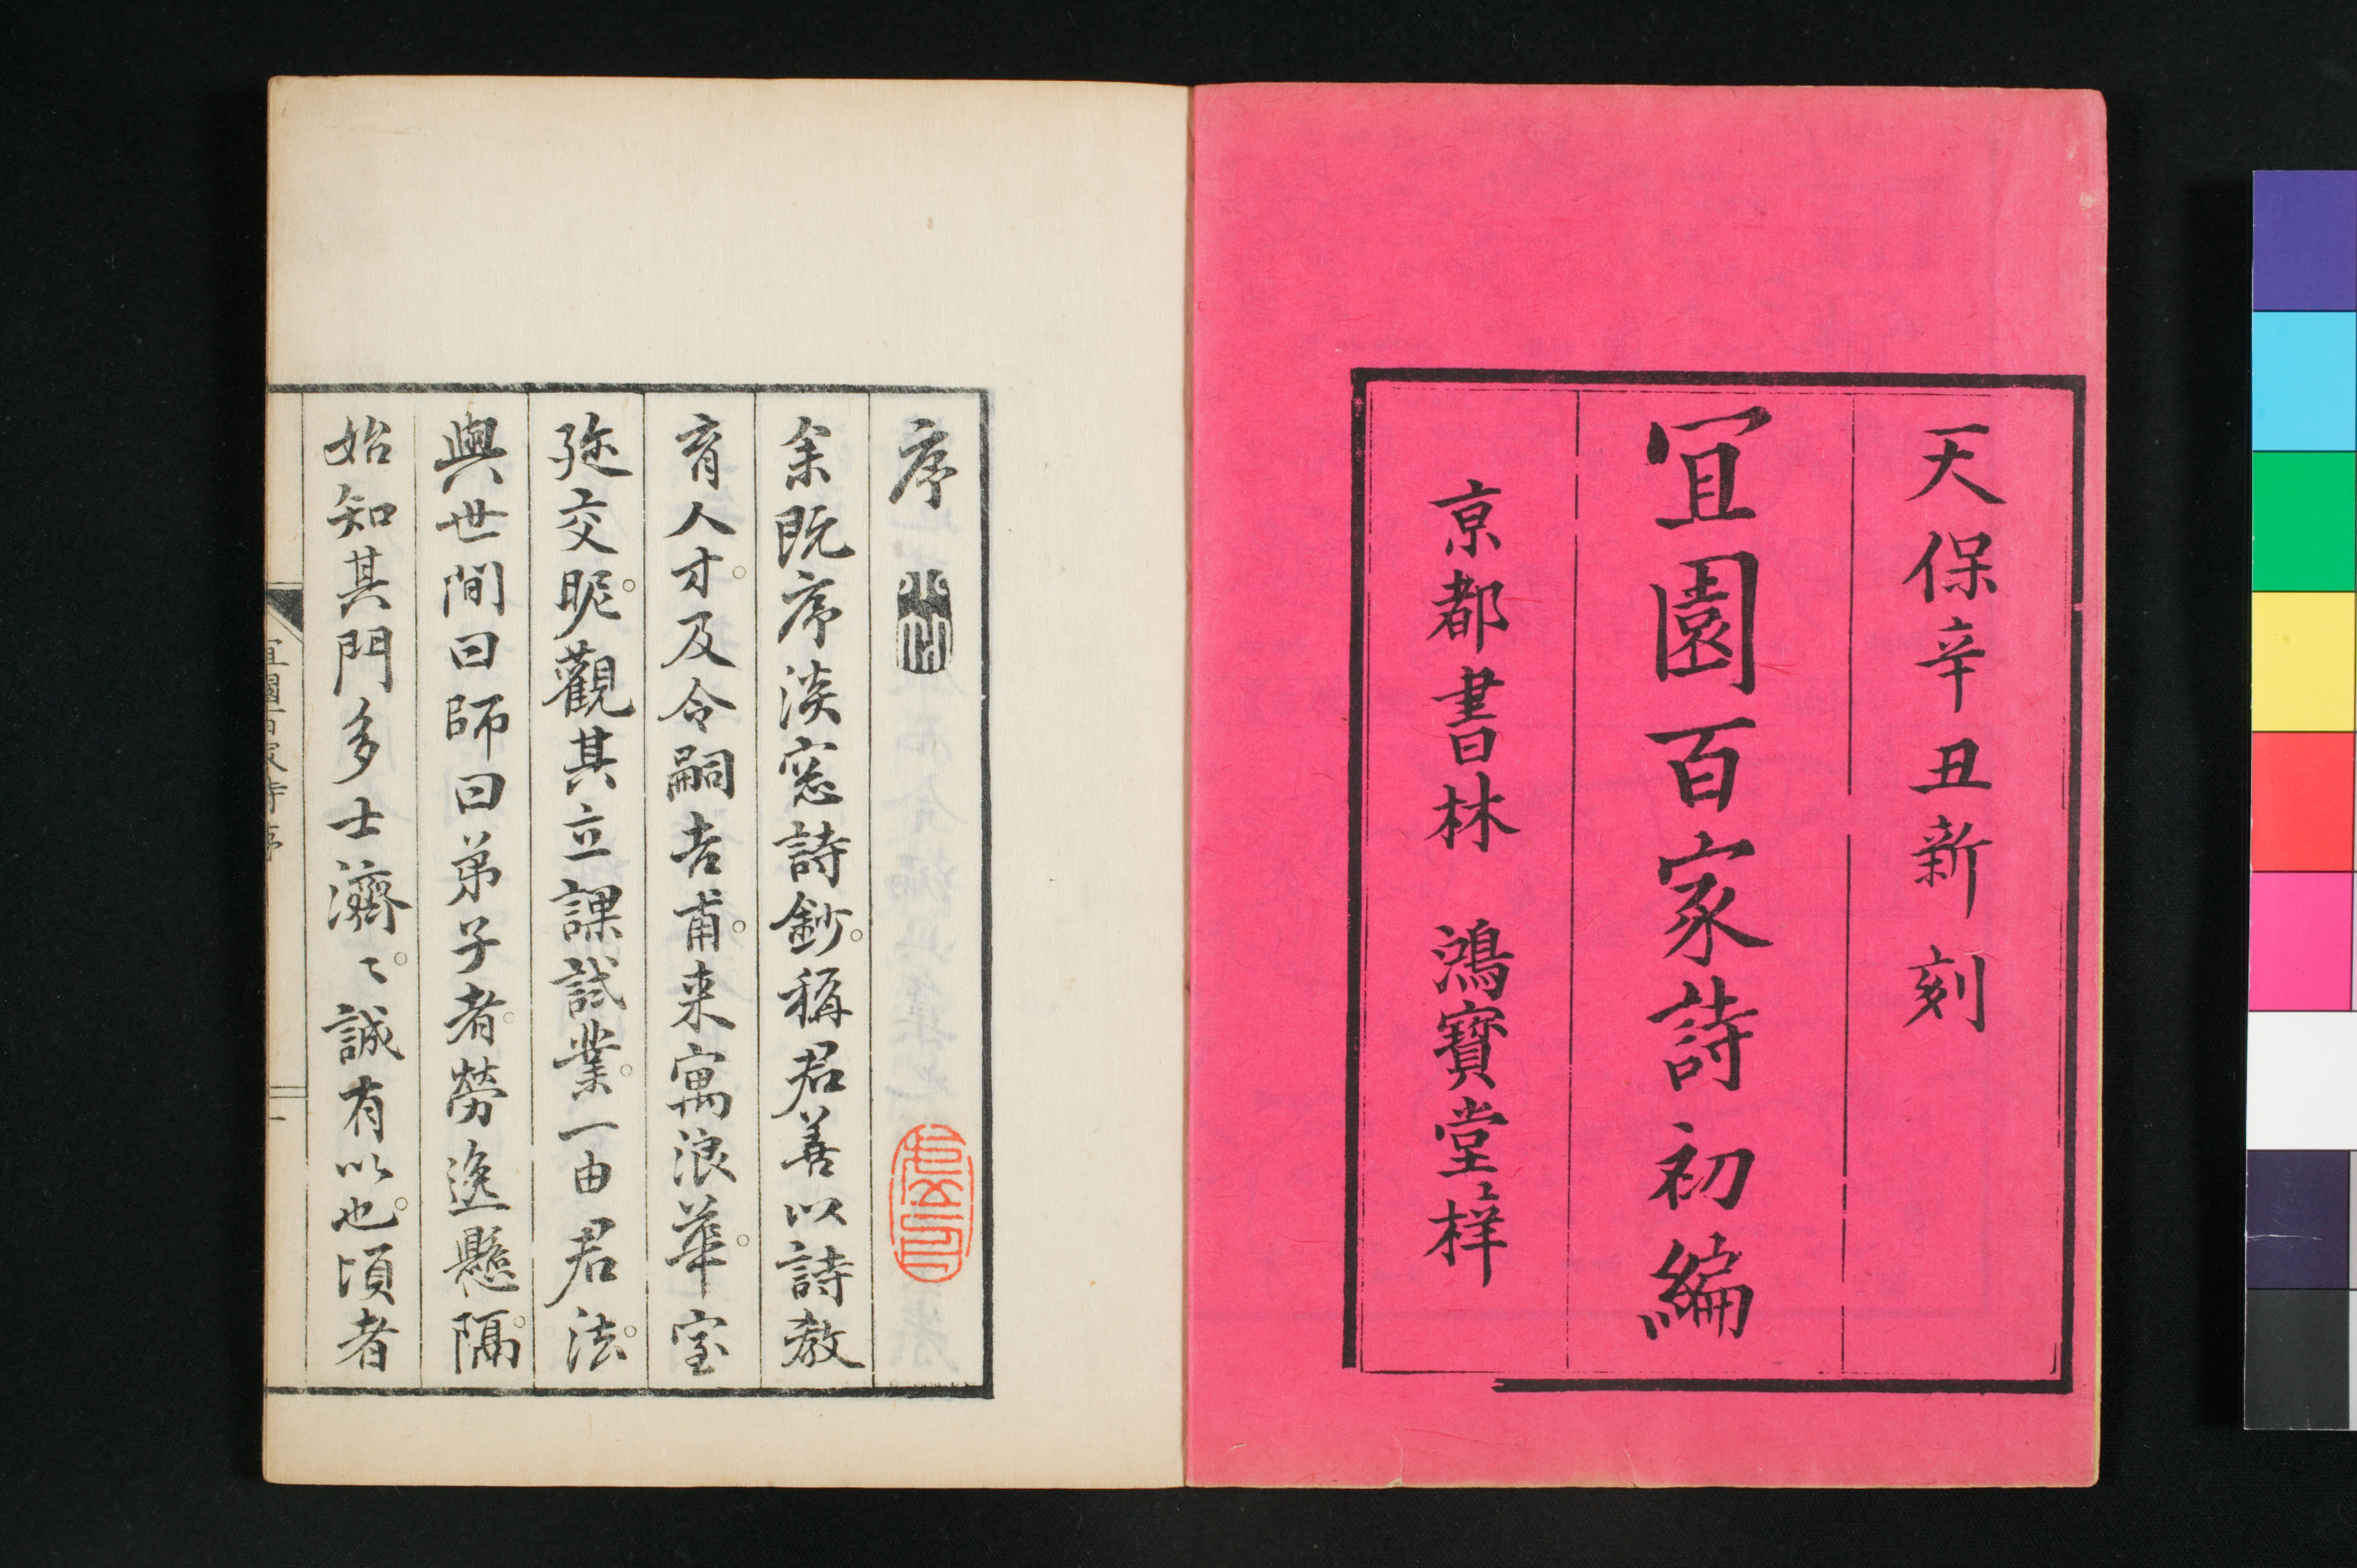 天保辛丑新刻
冝園百家詩初編
京都書林 鴻寶堂梓
序
余既序淡窓詩鈔。稱君善以詩教
育人才。及令嗣吉甫。来寓浪華。室
弥交昵。觀其立課試業。一由君法。
與世間曰師曰弟子者。勞逸懸隔。
始知其門多士濟〻。誠有以也。頃者
冝園百家詩序
一